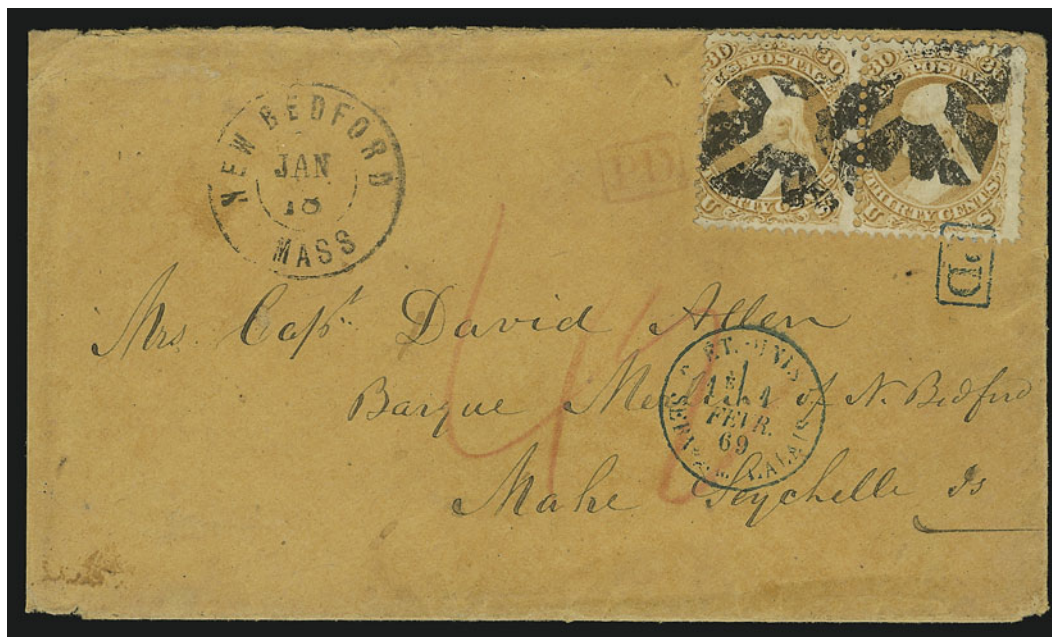 NEW BEDFORD
JAN
18
MASS
30 30
U.S. POSTAGE
THIRTY CENTS
U
30
U.S. POSTAGE
THIRTY CENTS
U S
P.D.
P.D.
Mrs Capt David Allen
Barque of N. Bedford
Mahe Seychelle Is
ET. UNIS
1
FEVR.
69
CALAIS